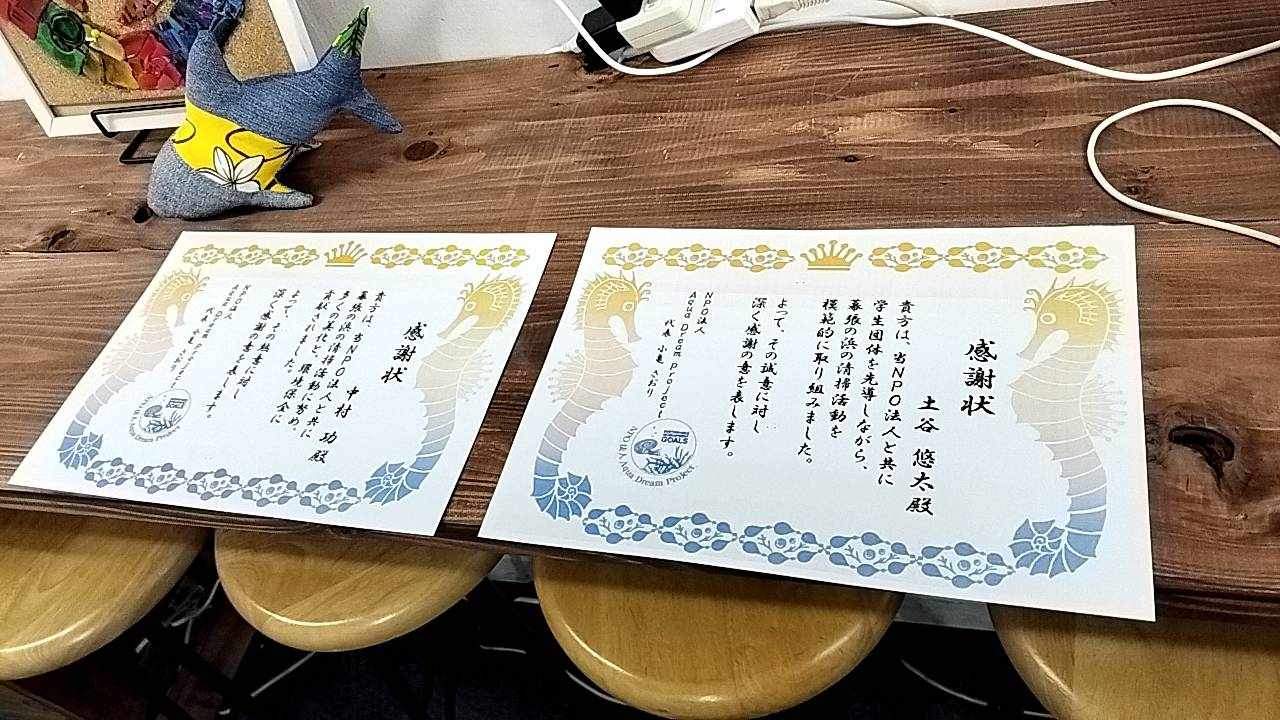 感謝状
土谷 悠太 殿
貴方は、当NPO法人と共に
学生団体を先導しながら、
幕張の浜の清掃活動を
模範的に取り組みました。
よって、その誠意に対し
深く感謝の意を表します。
NPO法人
Aqua Dream Project
代表 小亀 さおり
GOALS
NPO法人 Aqua Dream Project
感謝状
中村 功 殿
貴方は、当NPO法人と共に
幕張の浜の清掃活動に努め、
多くの美化と、環境保全に
貢献されました。
よって、その誠意に対し
深く感謝の意を表します。
NPO法人
Aqua Dream Project
代表 小亀 さおり